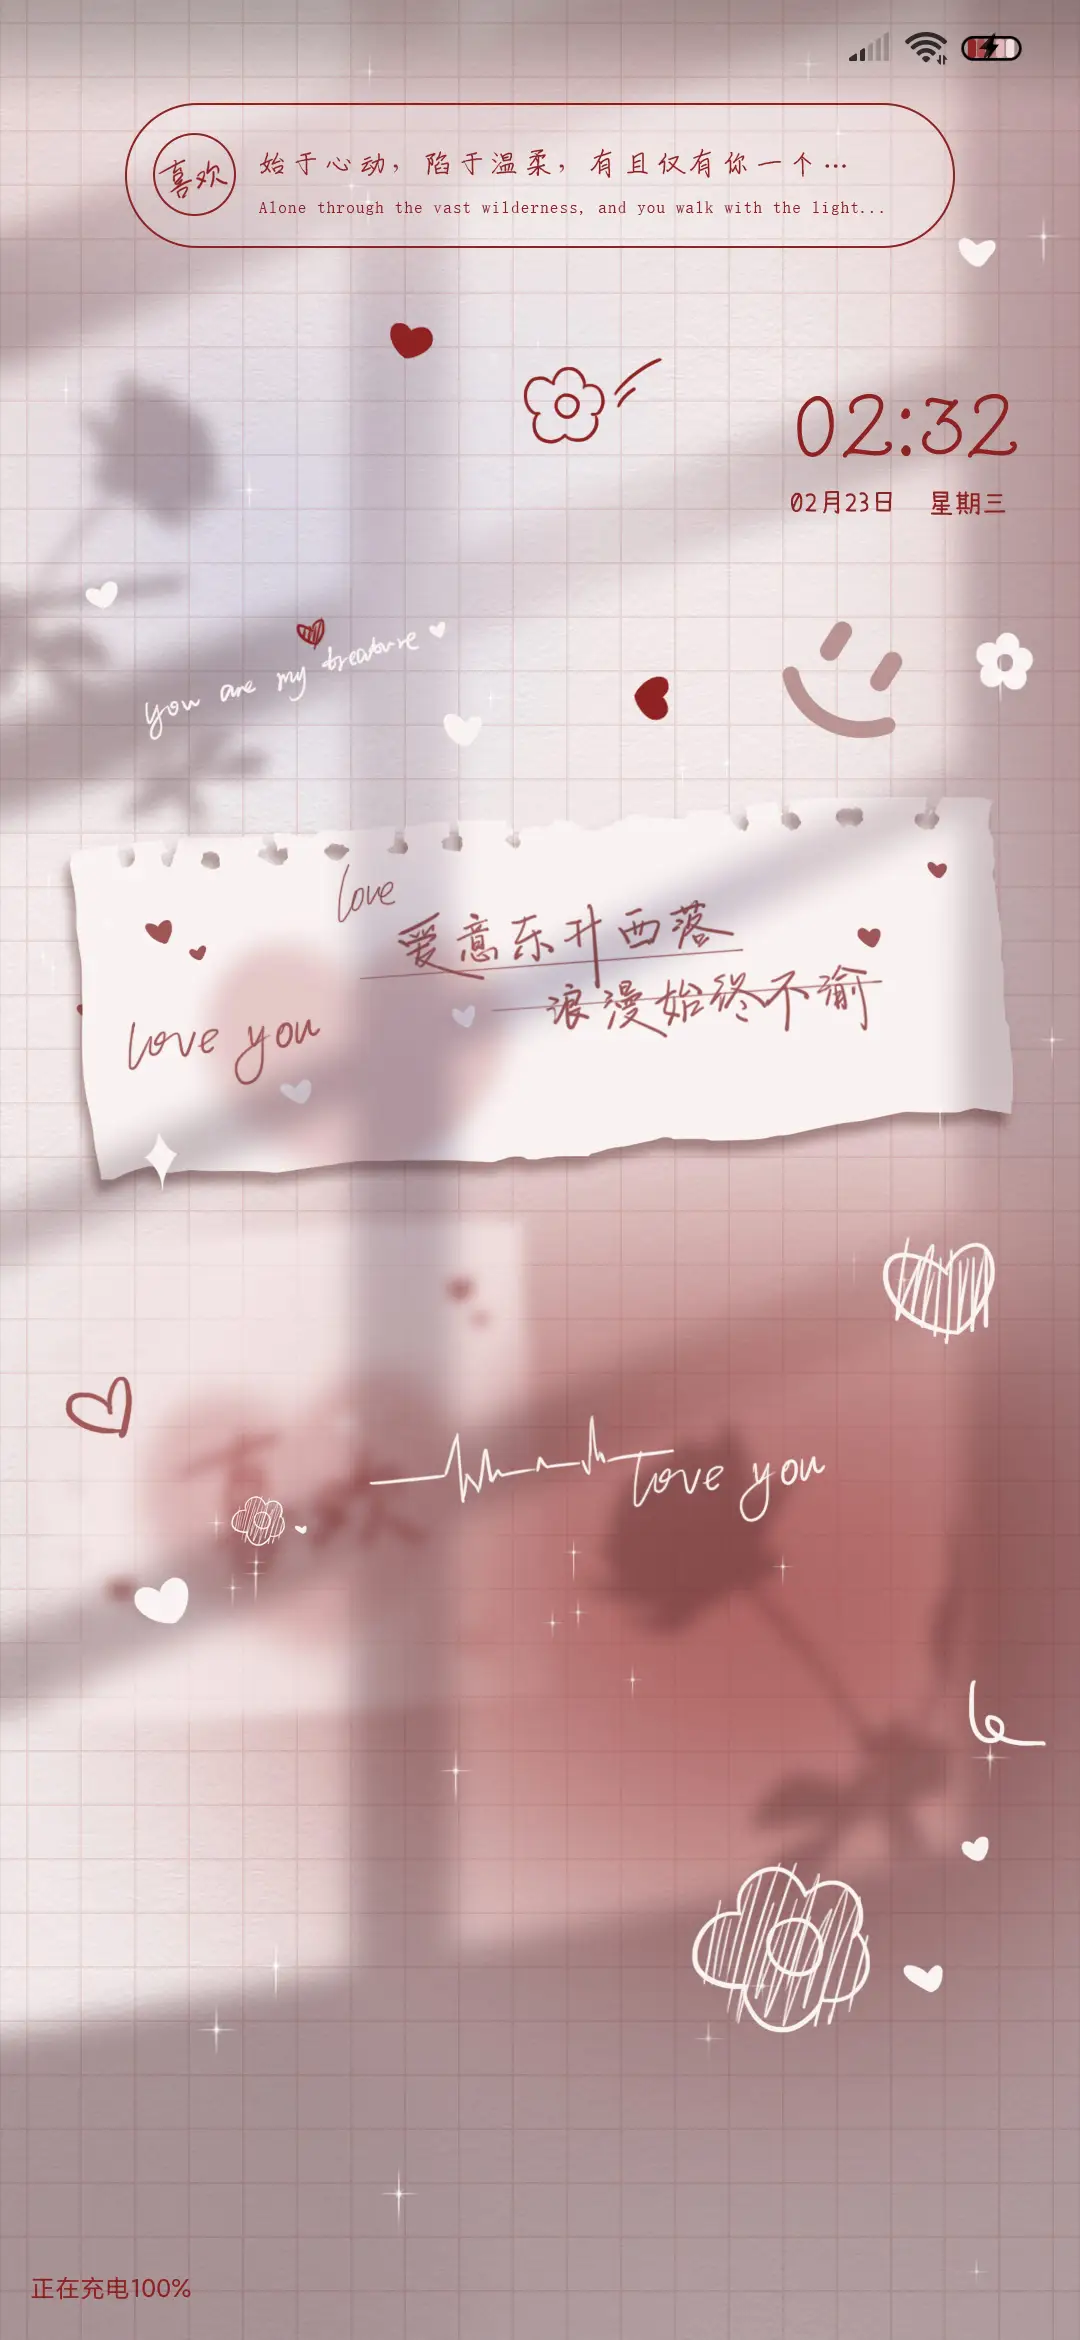 喜欢
始于心动，陷于温柔，有且仅有你一个...
Alone through the vast wilderness, and you walk with the light...
02:32
02月23日 星期三
you are my treature
love
爱意东升西落
浪漫始终不渝
love you
喜欢
love you
正在充电100%